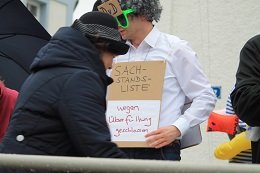 SACH-
STANDS-
LISTE*
wegen
Überfüllung
geschlossen